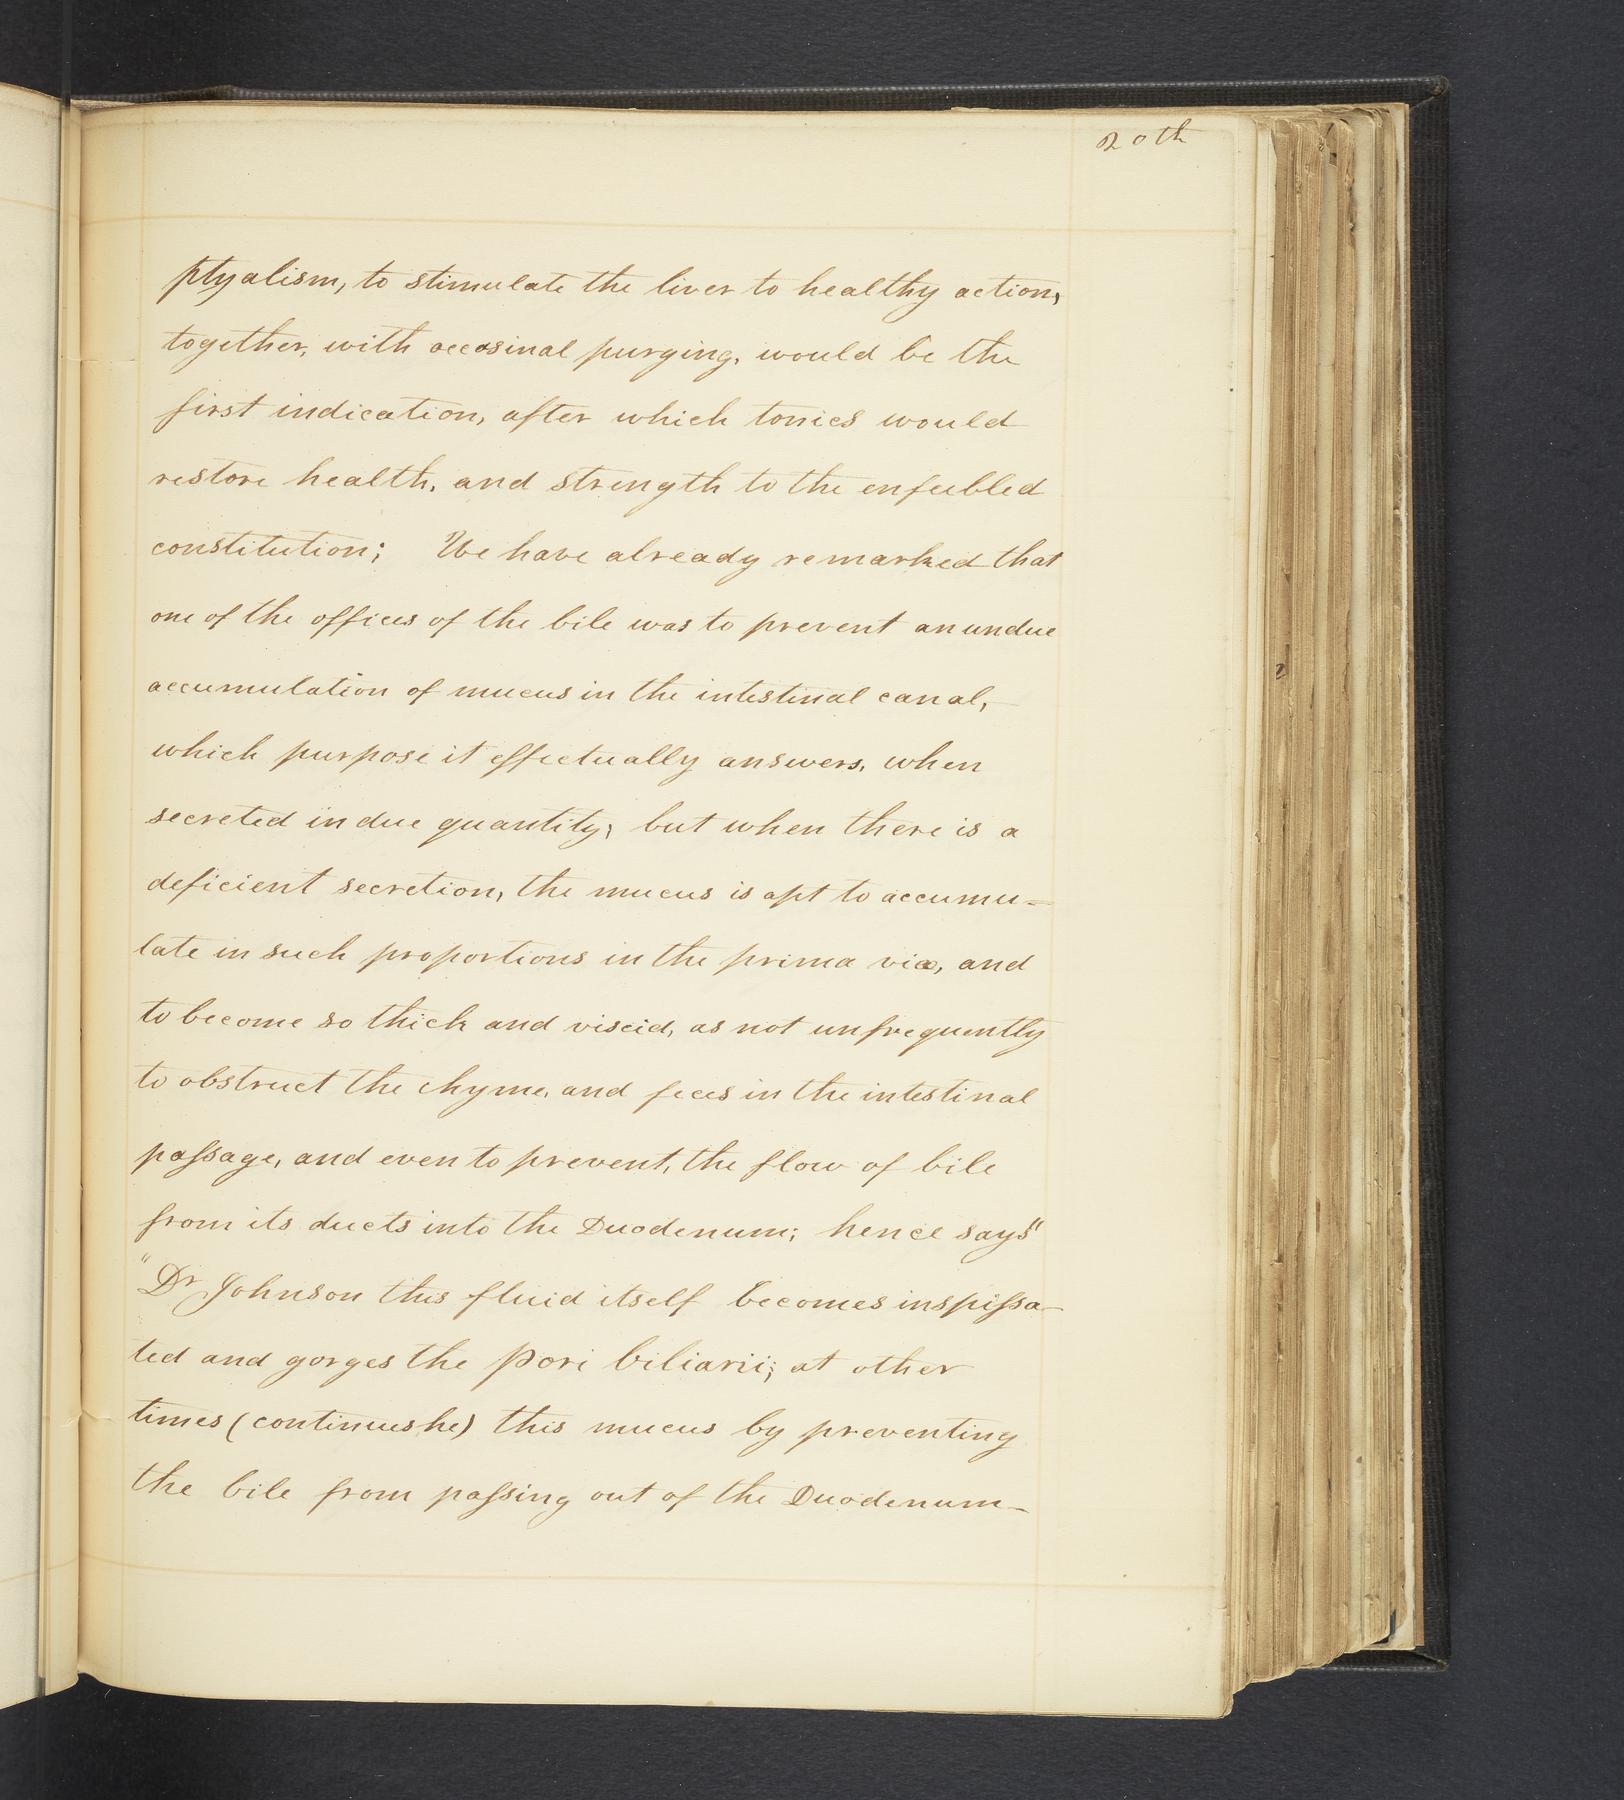 20th
ptyalism, to stimulate the liver to healthy action,
together, with occasinal purging, would be the
first indication, after which tonics would
restore health, and strength to the enfeebled
constitution; We have already remarked that
one of the offices of the bile was to prevent an undue
accumulation of mucus in the intestinal canal,
which purpose it effectually answers, when
secreted in due quantity; but when there is a
deficient secretion, the mucus is apt to accumu=
late in such proportions in the prima viæ, and
to become so thick and viscid, as not unfrequently
to obstruct the chyme, and feces in the intestinal
passage, and even to prevent, the flow of bile
from its ducts into the Duodenum; hence says"
"Dr Johnson this fluid itself becomes inspissa-
ted and gorges the Pori biliarii; at other
times (continues he) this mucus by preventing
the bile from passing out of the Duodenum-